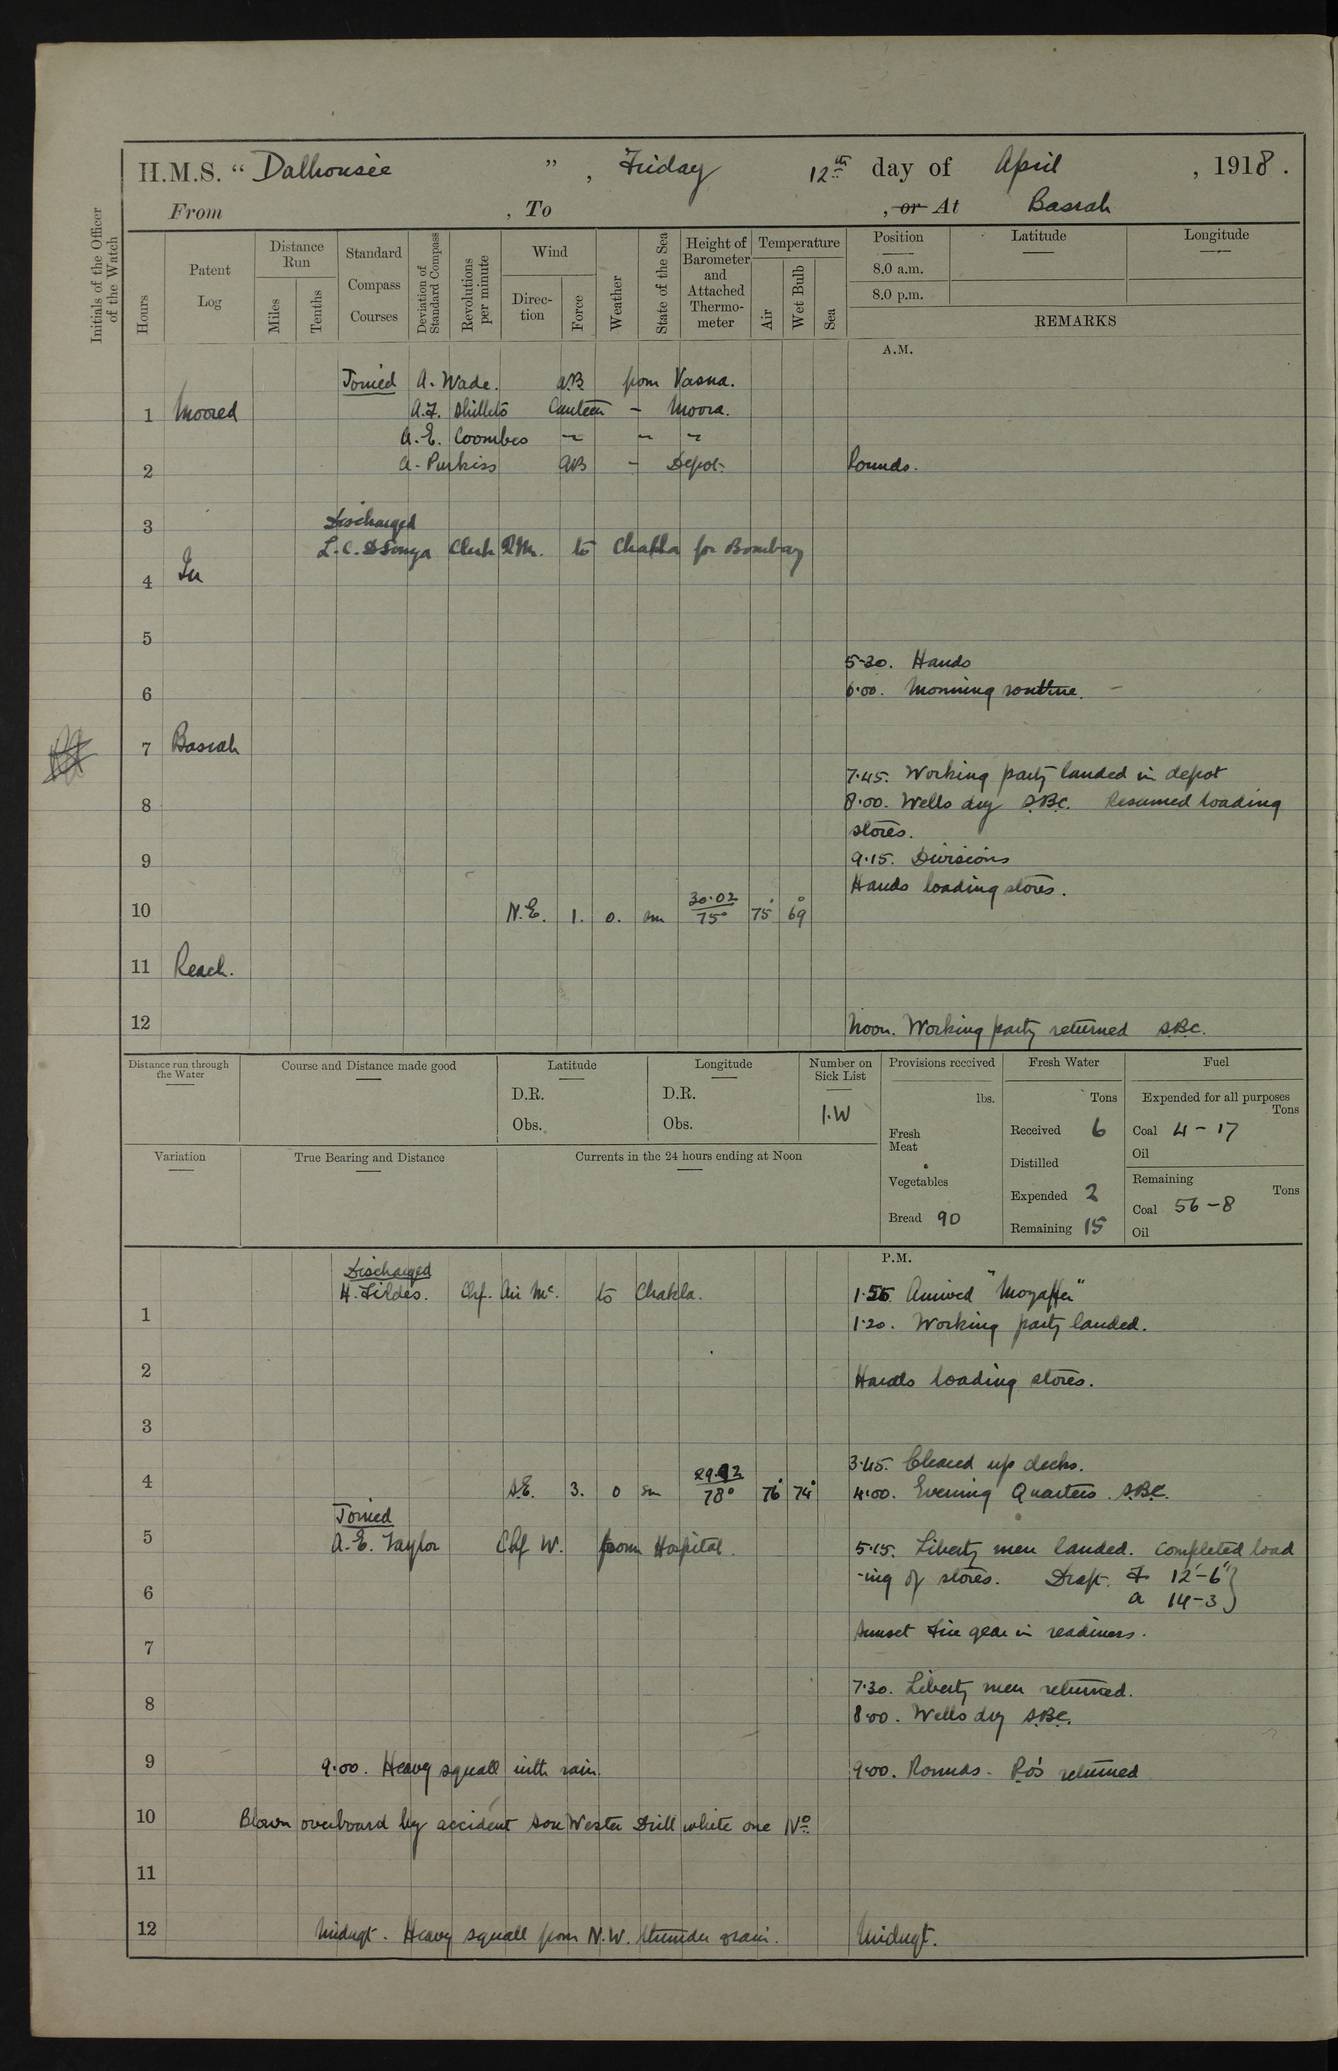 H.M.S. “ Dalhousie ” , Friday 12th day of April , 1918 .
From , To , or At Basrah
Initials of the Officer of the Watch
Hours
Patent Log
Distance Run
Miles
Tenths
Standard Compass Courses
Deviation of Standard Compass
Revolutions per minute
Wind
Direc-tion
Force
Weather
State of the Sea
Height of Barometer and Attached Thermo-meter
Temperature
Air
Wet Bulb
Sea
Position
8.0 a.m.
8.0 p.m.
Latitude
Longitude
REMARKS
A.M.
Joined A. Wade. AB from Vasna.
1 Moored A.F. Shillito Canteen - Moora.
A.E. Coombes ~ ~ ~
2 A. Purkiss AB - Depot. Rounds.
3 Discharged
L.C. DSouza Clerk RIM. to Chakla for Bombay
4 In
5
5.30. Hands
6 6.00. Morning routine. -
7 Basrah
7.45. Working party landed in depot
8 8.00. Wells dry SBC. Resumed loading
stores.
9 9.15. Divisions
Hands loading stores.
10 N.E. 1. 0. sm 30.02 75° 75° 69°
11 Reach.
12 Noon. Working party returned SBC.
Distance run through the Water
Course and Distance made good
Latitude
D.R.
Obs.
Longitude
D.R.
Obs.
Number on Sick List
1.W
Provisions received
lbs.
Fresh Meat
Vegetables
Bread 90
Fresh Water
Tons
Received 6
Distilled
Expended 2
Remaining 15
Fuel
Expended for all purposes
Tons
Coal 4-17
Oil
Remaining
Tons
Coal 56-8
Oil
Variation
True Bearing and Distance
Currents in the 24 hours ending at Noon
P.M.
Discharged
H. Fildes. Chf. Air Mc. to Chakla. Arrived "Mozaffer"
1 1.20. Working party landed.
2 Hands loading stores.
3
3.45. Cleared up decks.
4 SE. 3. 0 sm 29.92 78° 76° 74° 4.00. Evening Quarters. SBC.
Joined
5 A.E. Taylor Chf W. from Hospital. 5.15. Liberty men landed. Completed load
-ing of stores. Draft. F 12'-6"
6 a 14-3
Sunset Fire gear in readiness.
7
7.30. Liberty men returned.
8 8.00. Wells dry SBC.
9 9.00. Heavy squall with rain. 9.00. Rounds. POs returned
10 Blown overboard by accident Sou Wester Drill white one No
11
12 Midngt. Heavy squall from N.W. thunder &rain. Midngt.